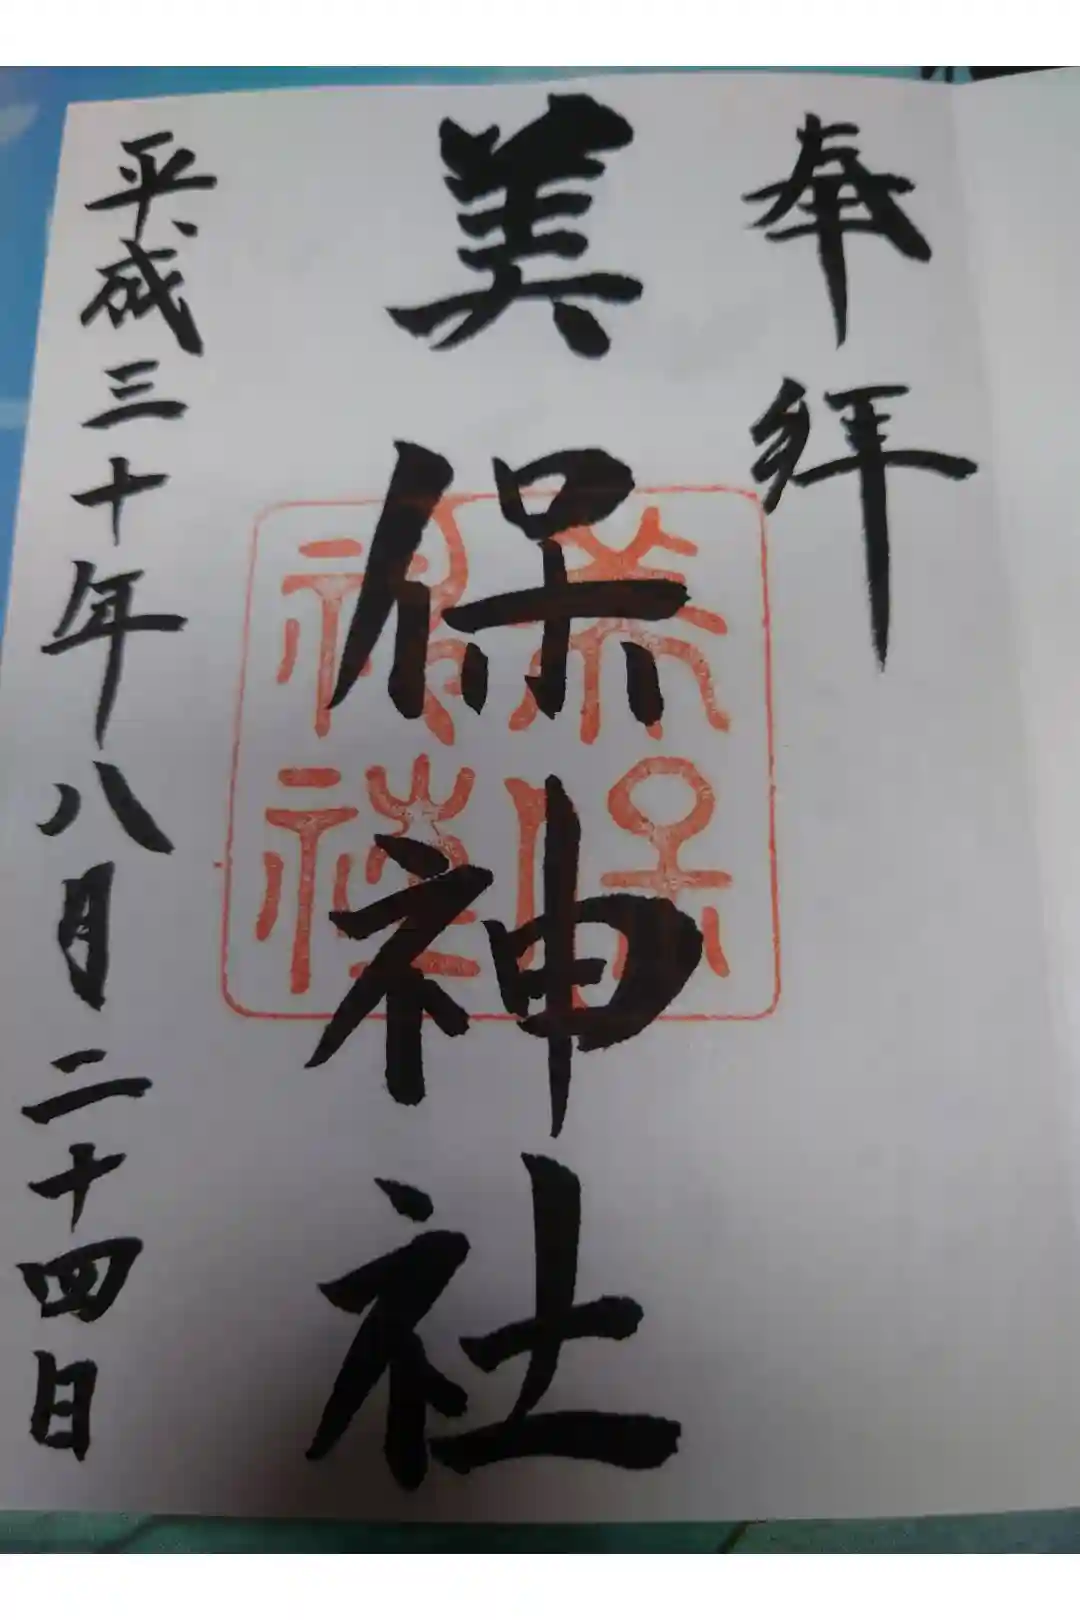 奉拝
美保神社
美保
平成三十年八月二十四日